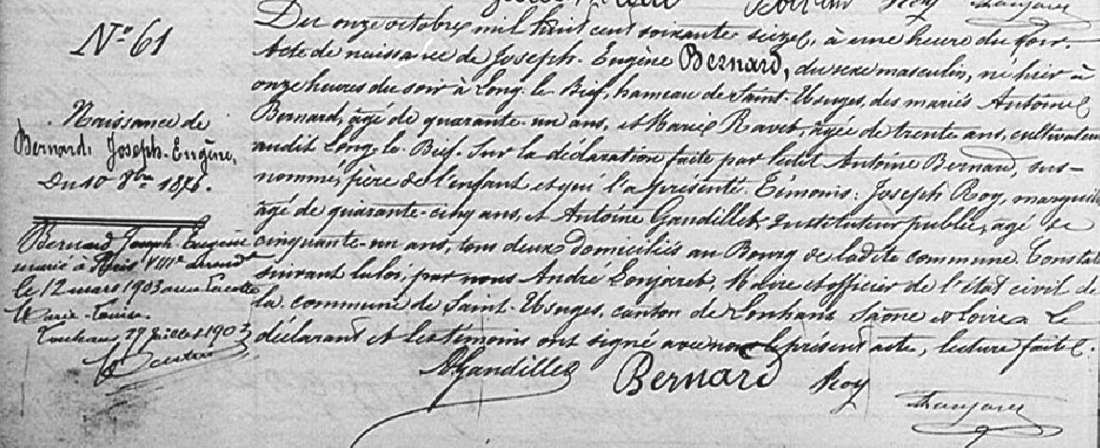 N° 61
Naissance de
Bernard, Joseph-Eugène,
Du 10 8bre 1876.
Bernard Joseph-Eugène
marié à Paris VIIIe arrondt
le 12 mars 1903 avec
Marie-Louise.
Louhans, 27 Juillet 1903
Du onze octobre mil huit cent soixante seize, à une heure du soir.
Acte de naissance de Joseph-Eugène Bernard, du sexe masculin, né hier à
onze heures du soir à Long-le-Bief, hameau de Saint-Usuges, des mariés Antoine
Bernard, âgé de quarante-un ans, et Marie Ravet, âgée de trente ans, cultivateurs
audit Long-le-Bief. Sur la déclaration faite par ledit Antoine Bernard, sus-
nommé, père de l'enfant et qui l'a présenté. Témoins: Joseph Roy, marguillier
âgé de quarante-cinq ans, et Antoine Gandillet, instituteur public, âgé de
cinquante-un ans, tous deux domiciliés au Bourg de ladite commune. Constaté
suivant la loi, par nous André Lonjaret, Maire et officier de l'état civil de
la commune de Saint-Usuges, canton de Louhans Saône et Loire. Le
déclarant et les témoins ont signé avec nous le présent acte, lecture faite.
Gandillet Bernard Roy